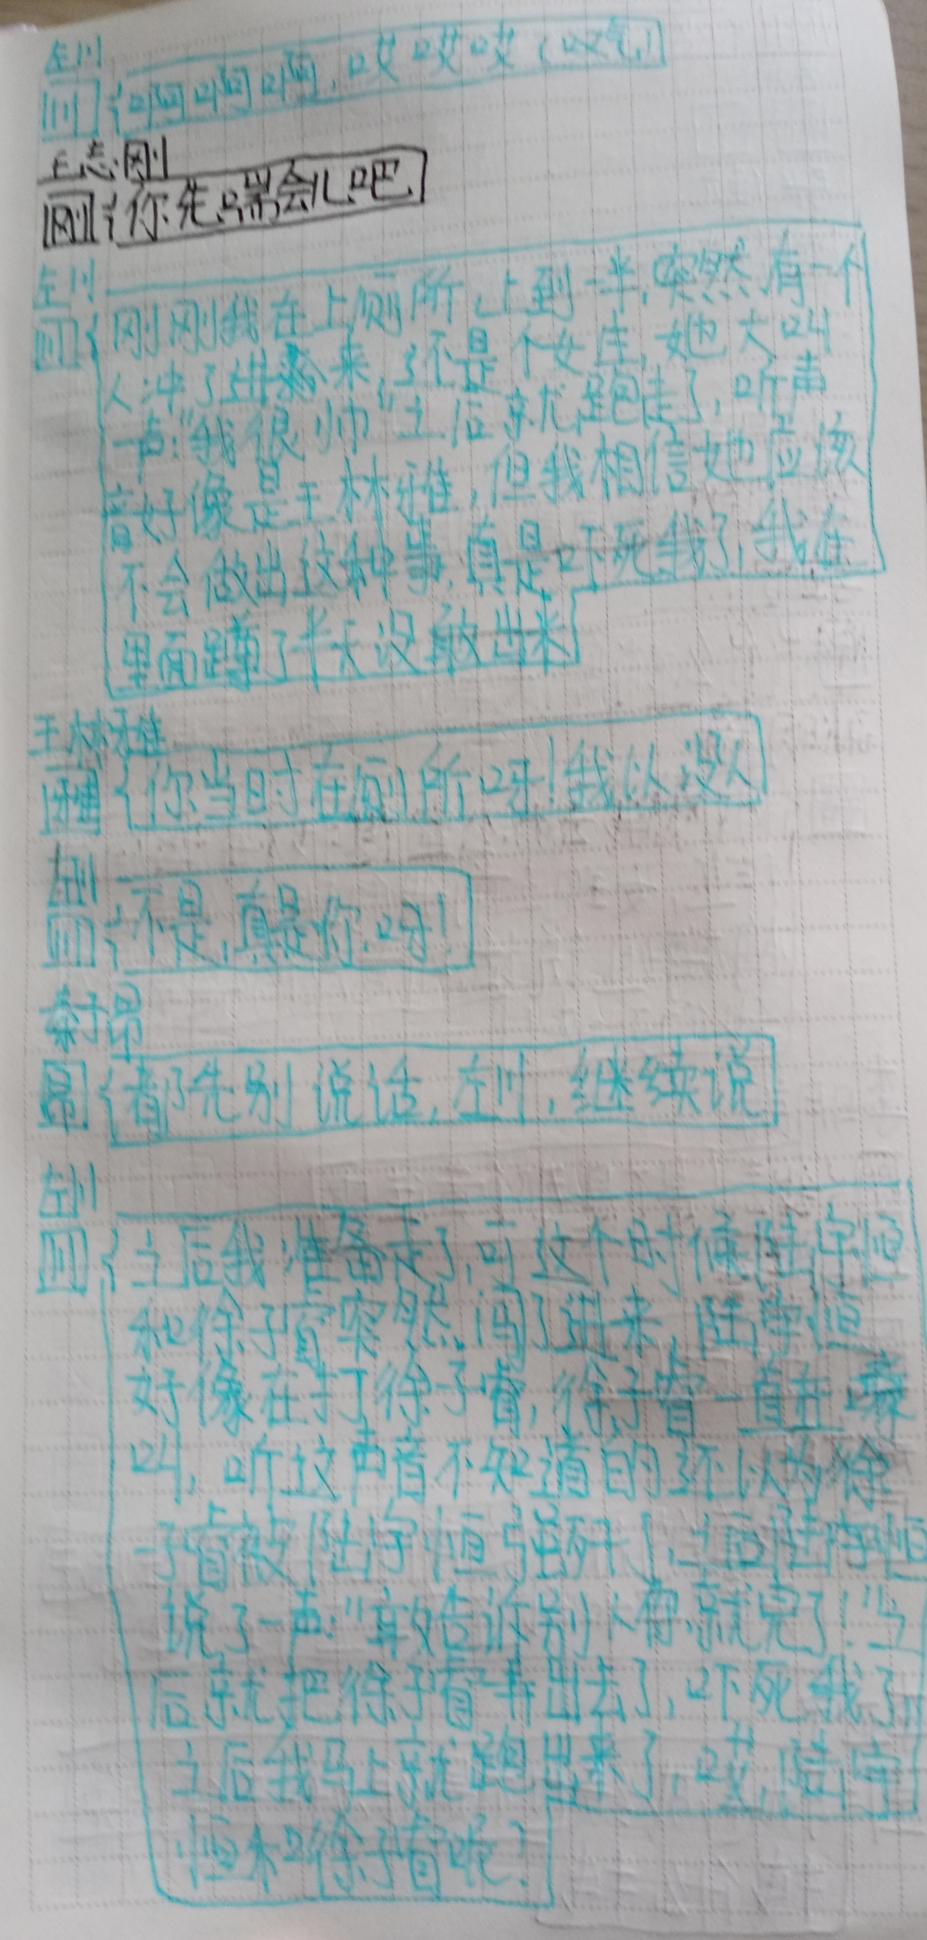 左川
川{啊啊啊,哎哎哎(叹气)
王志刚
刚{你先呆会儿吧
左川
川{刚刚我在上厕所,上到一半,突然有一个
人冲了进来,还是个女生,她大叫
一声:“我很帅”之后就跑走了,听声
音好像是王林雅,但我相信她应该
不会做出这种事,真是吓死我了,我在
里面蹲了半天没敢出来
王林雅
雅{你当时在厕所呀!我以没人
左川
川{不是,真是你呀!
秦子昂
昂{都先别说话,左川,继续说
左川
川{之后我准备走了,可这个时候陆宇恒
和徐子睿突然闯了进来,陆宇恒
好像在打徐子睿,徐子睿一直在
叫,听这声音不知道的还以为徐
子睿被陆宇恒强奸了,之后陆宇恒
说了一声:“敢告诉别人你就完了!”之
后就把徐子睿弄出去了,吓死我了,
之后我马上就跑出来了,哎,陆宇
恒和徐子睿呢?